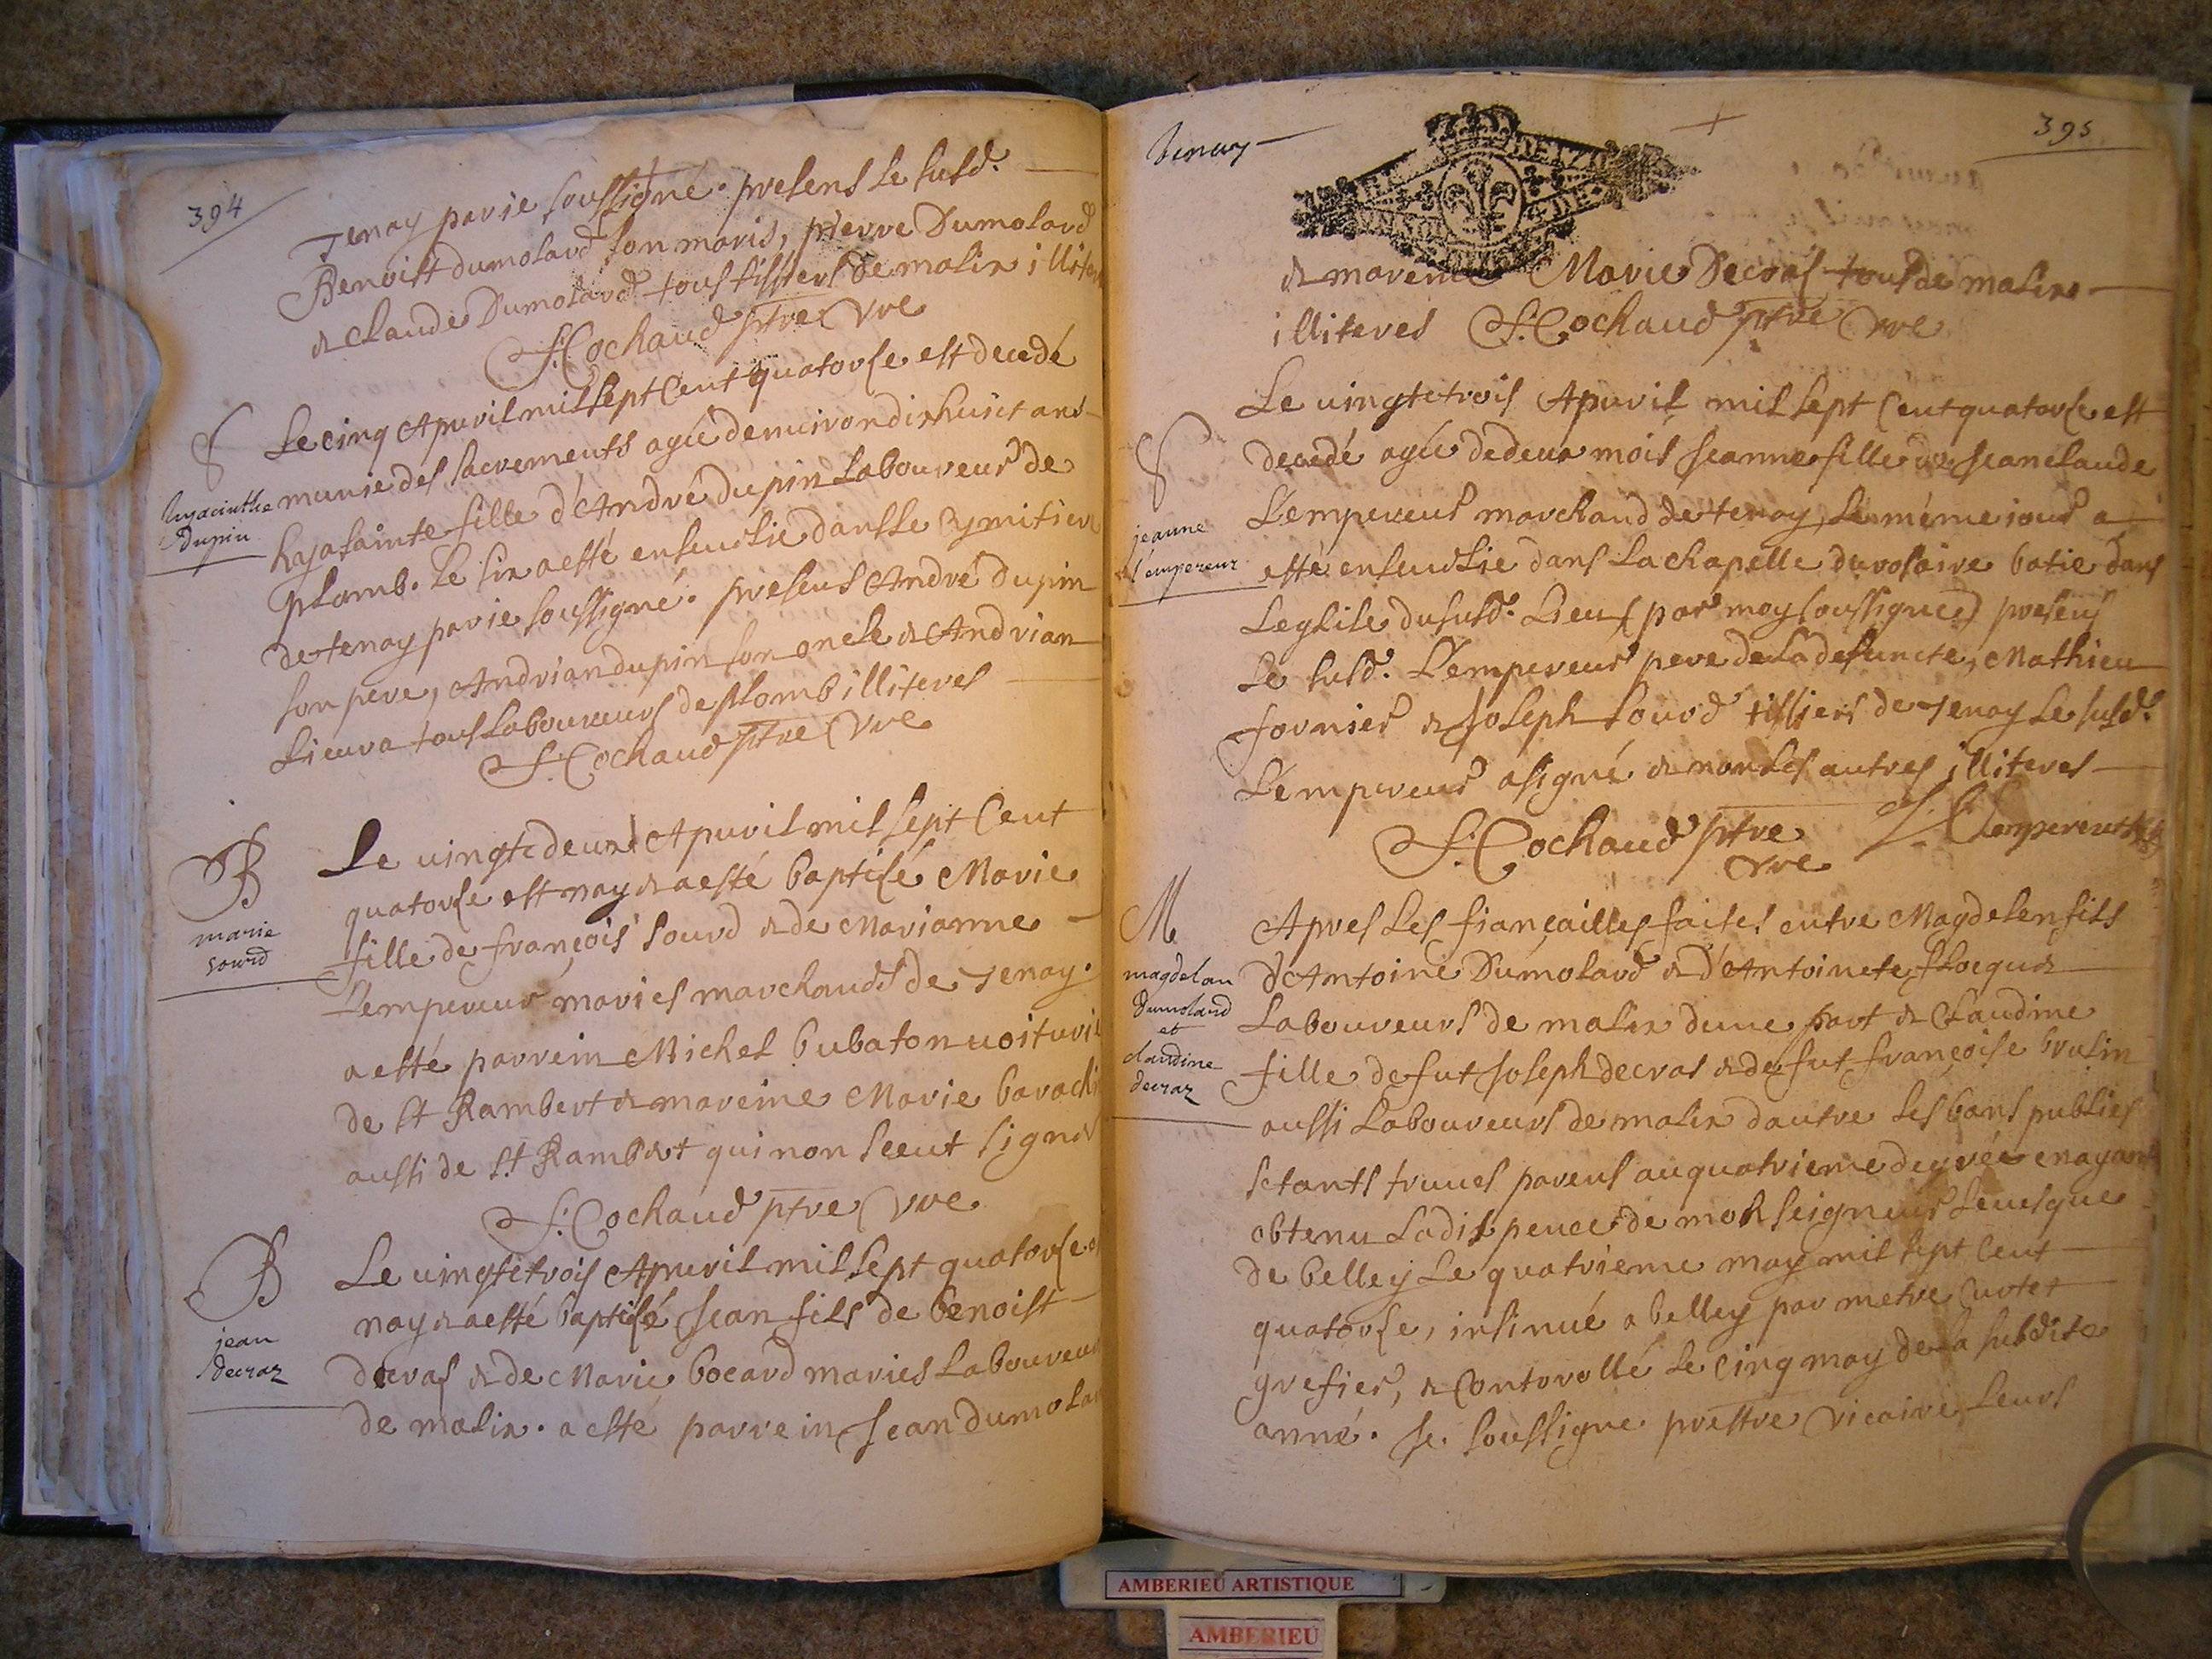 394
Tenay par ie soussigné. presens le susd.
Benoist dumolard son maris, pierre Dumolard
& claude Dumolard tous tissiers de malix illiter
S. Cochaud ptre vre
S
hyacinthe
dupin
Le cinq Apuril mil sept Cent quatorse est decedé
munie des sacrements agée denuiron dixhuict ans
hyasainte fille d'André dupin Laboureur de
plomb. Le six a esté enseuelie dans le Cymitiere
de tenay par ie soussigné. presens André dupin
son pere, Andrian dupin son oncle & Andrian
Lieura tous Laboureurs de plomb illiteres
S. Cochaud ptre vre
B
marie
sourd
Le uingtedeux Apuril mil sept Cent
quatorse est nay & a esté baptisé Marie
fille de françois sourd & de Marianne
L'empereur maries marchands de Tenay.
a esté parrein Michel bubaton uoiturie
de St Rambert & mareine Marie barach
aussi de St Rambert qui non sceut signer
S. Cochaud ptre vre
B
jean
decraz
Le uingtetrois Apuril mil sept quatorse e
nay & a esté baptisé Jean fils de benoist
decras & de Marie bocard maries Laboureur
de malix. a esté parrein Jean dumolar
Tenay
395
& mareine Marie Decras tous de malix
illiteres S. Cochaud ptre vre
S
jeanne
l'empereur
Le uingtetrois Apuril mil sept Cent quatorse est
decedé agée de deux mois Jeanne fille de Jean claude
L'empereur marchand de tenay, Le méme iour a
esté enseuelie dans La chapelle du rosaire batie dans
Leglise du susd. Lieu (par moy soussigné) presens
Le susd. L'empereur pere de la defuncte, Mathieu
fornier & Joseph sourd tissiers de Tenay Le susd.
L'empereur a signé & non les autres illiteres
S. Cochaud ptre vre Lempereur
M
magdelan
dumolard
et
claudine
decraz
Apres Les fiançailles faites entre Magdelen fils
d'Antoine Dumolard & d'Antoinete
Laboureurs de malix dune part & Claudine
fille de fut Joseph decras & de fut françoise brulin
aussi Laboureurs de malix dautre Les bans publies
setants truues parens au quatrieme degrée en ayant
obtenu La dispence de monseigneur Leuesque
de belley Le quatrieme may mil sept Cent
quatorse, insinué a belley par metre Curtet
grefier, & Contorollé Le Cinq may de la susdite
anné. Je soussigne prestre vicaire Leurs
AMBERIEU ARTISTIQUE
AMBERIEU